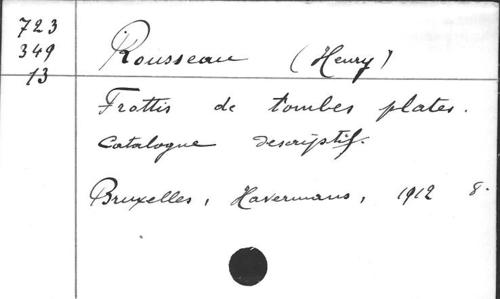 723
349
13
Rousseau (Henry)
Frottis de tombes plates.
Catalogue descriptif.
Bruxelles, Havermans, 1912 8.